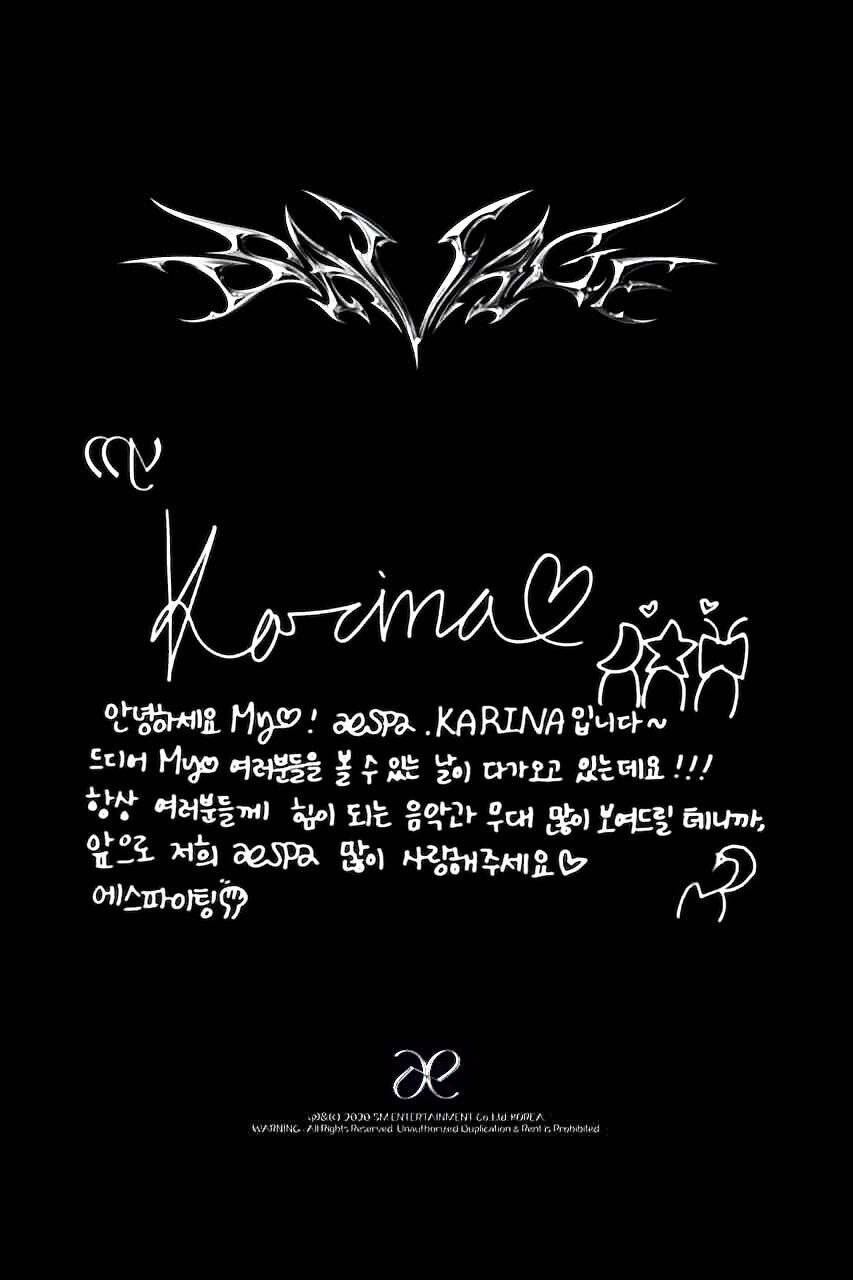 SAVAGE
my
Karina♡
안녕하세요 My♡! aespa .KARINA입니다~
드디어 My♡ 여러분들을 볼 수 있는 날이 다가오고 있는데요!!!
항상 여러분들께 힘이 되는 음악과 무대 많이 보여드릴 테니까,
앞으로 저희 aespa 많이 사랑해주세요♡
에스파이팅
æ
(p)&(c) 2020 SM ENTERTAINMENT Co., Ltd. KOREA
WARNING : All Rights Reserved. Unauthorized Duplication & Rent is Prohibited